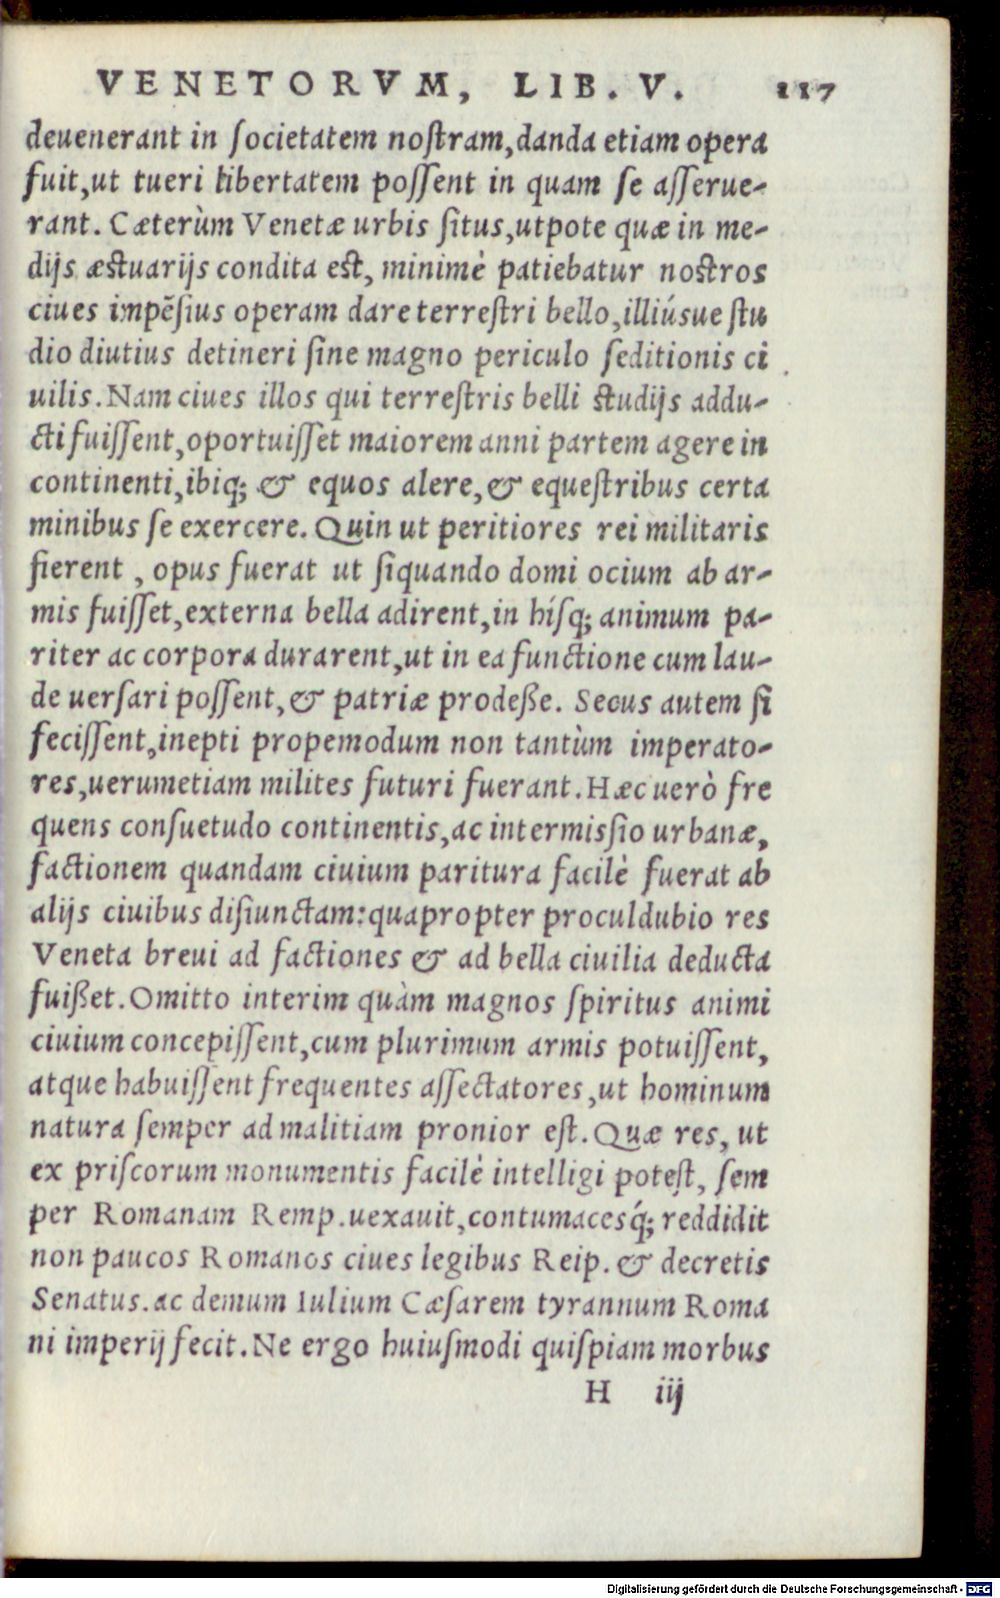 VENETORVM, LIB. V. 117
deuenerant in ſocietatem noſtram, danda etiam opera
fuit, ut tueri libertatem poſſent in quam ſe aſſerue-
rant. Cæterùm Venetæ urbis ſitus, utpote quæ in me-
dijs æſtuarijs condita eſt, minimè patiebatur noſtros
ciues impẽſius operam dare terreſtri bello, illiúsue ſtu
dio diutius detineri ſine magno periculo ſeditionis ci
uilis. Nam ciues illos qui terreſtris belli ſtudijs addu-
cti fuiſſent, oportuiſſet maiorem anni partem agere in
continenti, ibiq; & equos alere, & equeſtribus certa
minibus ſe exercere. Quin ut peritiores rei militaris
fierent, opus fuerat ut ſiquando domi ocium ab ar-
mis fuiſſet, externa bella adirent, in híſq; animum pa-
riter ac corpora durarent, ut in ea functione cum lau-
de uerſari poſſent, & patriæ prodeße. Secus autem ſi
feciſſent, inepti propemodum non tantùm imperato-
res, uerumetiam milites futuri fuerant. Hæc uerò fre
quens conſuetudo continentis, ac intermiſſio urbanæ,
factionem quandam ciuium paritura facilè fuerat ab
alijs ciuibus diſiunctam: quapropter proculdubio res
Veneta breui ad factiones & ad bella ciuilia deducta
fuißet. Omitto interim quàm magnos ſpiritus animi
ciuium concepiſſent, cum plurimum armis potuiſſent,
atque habuiſſent frequentes aſſectatores, ut hominum
natura ſemper ad malitiam pronior eſt. Quæ res, ut
ex priſcorum monumentis facilè intelligi poteſt, ſem
per Romanam Remp. uexauit, contumacesq́; reddidit
non paucos Romanos ciues legibus Reip. & decretis
Senatus. ac demum Iulium Cæſarem tyrannum Roma
ni imperij fecit. Ne ergo huiuſmodi quiſpiam morbus
H iij
Digitalisierung gefördert durch die Deutsche Forschungsgemeinschaft - DFG